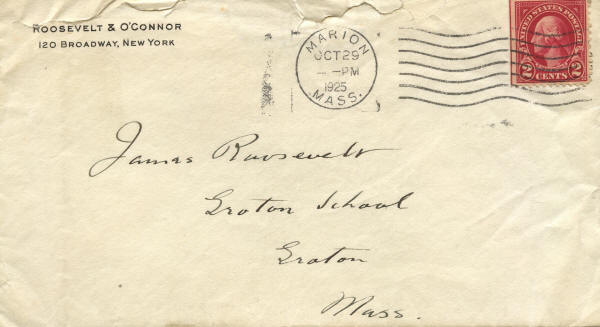 ROOSEVELT & O'CONNOR
120 BROADWAY, NEW YORK
MARION
OCT 29
-PM
1925
MASS.
UNITED STATES POSTAGE
2 CENTS 2
James Roosevelt
Groton School
Groton
Mass.